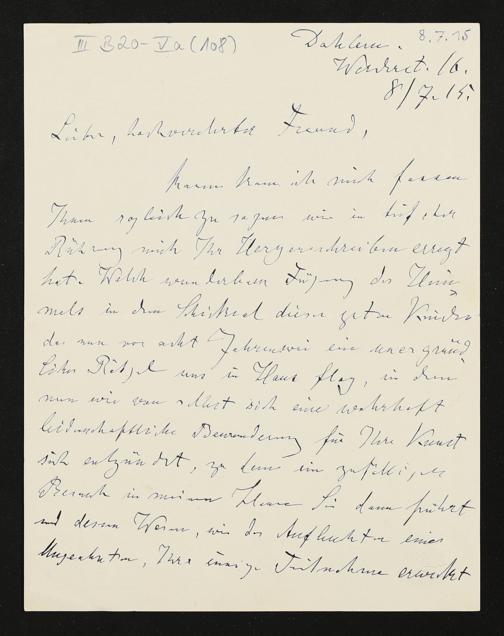 III B20-Va (108)
8.7.15
Dahlem.
Werderstr. 16.
8/7.15.
Lieber, hochverehrter Freund,
Kaum kann ich mich fassen
Ihnen sogleich zu sagen wie in tiefster
Rührung mich Ihr Herzensschreiben erregt
hat. Welch wunderbare Fügung des Him-
mels in dem Schicksal dieser guten Kinder
das nun vor acht Jahren wie ein unergründ-
liches Rätsel uns in Haus flog, in dem
nun wie von selbst sich eine wahrhaft
leidenschaftliche Bewunderung für Ihre Kunst
sich entzündet, zu dem ein zufälliger
Besuch in meinem Hause Sie dann führt
und dessen Wesen, wie das Aufleuchten eines
Ungeahnten, Ihre innige Teilnahme erweckt